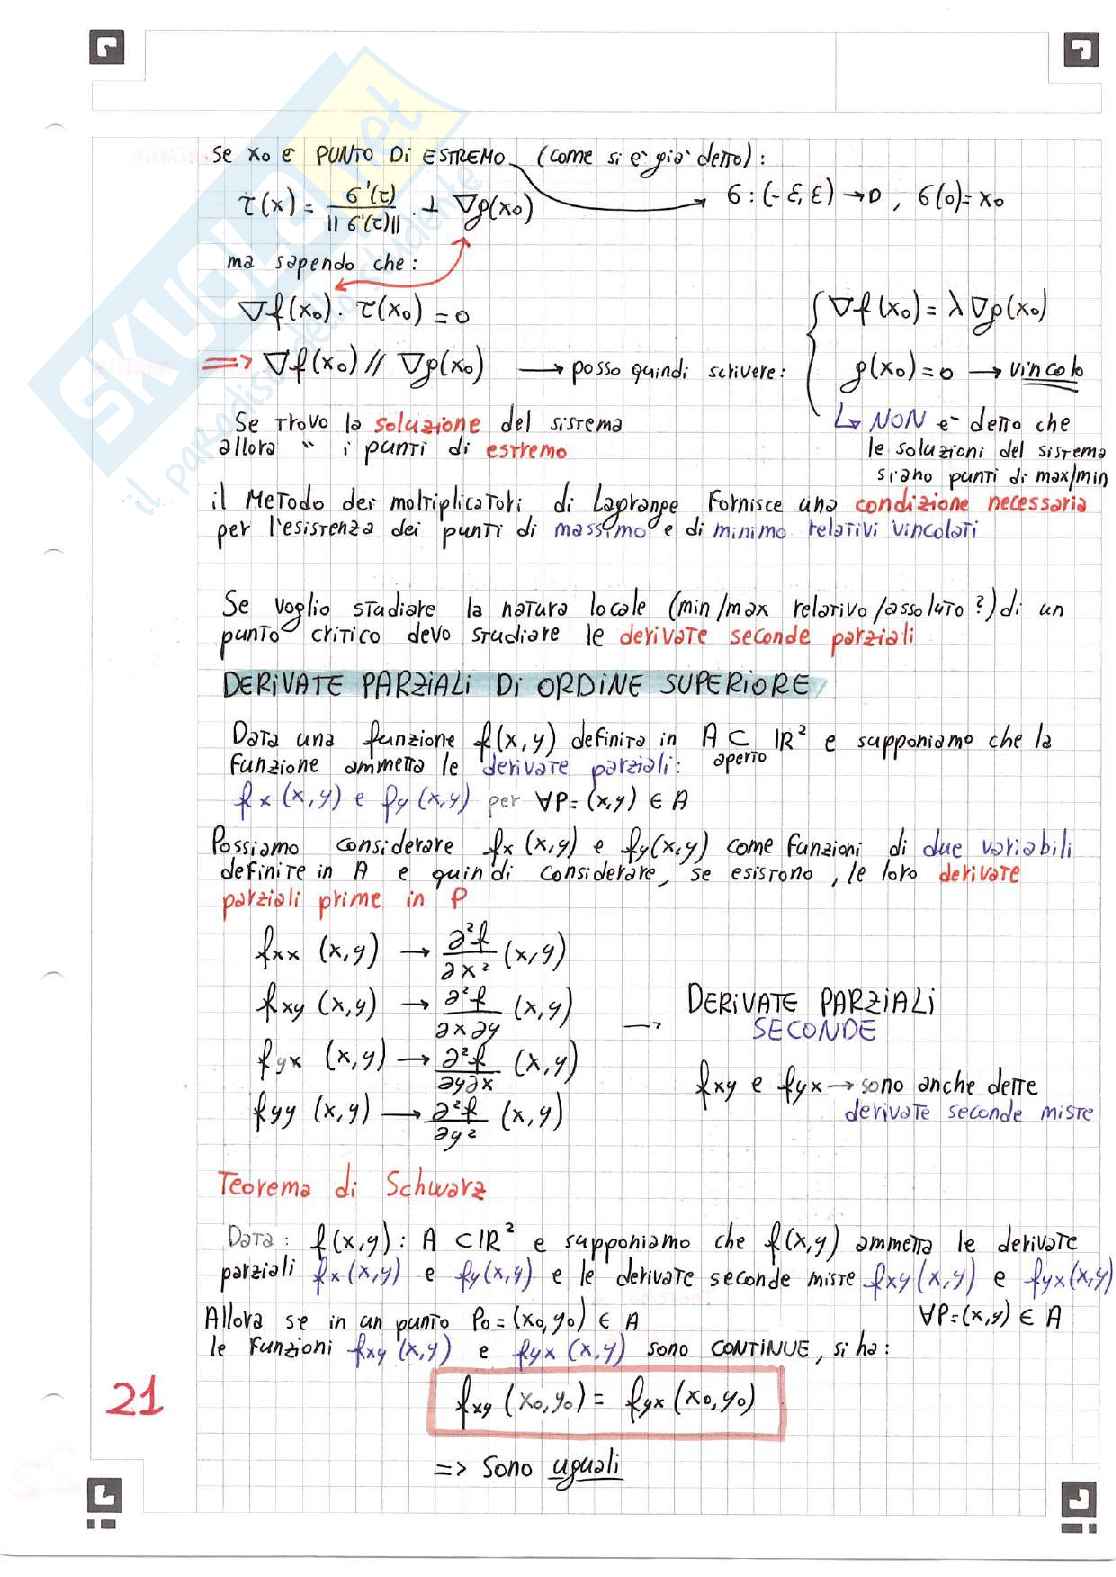 SKUOLA.net
il paradiso dello studente
Se x₀ è PUNTO Di ESTREMO (come si è già detto):
τ(x) = σ'(τ) / ||σ'(τ)|| . ⊥ ∇g(x₀)
σ: (-ε, ε) → D , σ(0) = x₀
ma sapendo che:
∇f(x₀) · τ(x₀) = 0
⇒ ∇f(x₀) // ∇g(x₀) → posso quindi scrivere:
{ ∇f(x₀) = λ ∇g(x₀)
g(x₀) = 0 → vincolo
↳ NON è detto che
le soluzioni del sistema
siano punti di max/min
Se trovo la soluzione del sistema
allora " i punti di estremo
il Metodo dei moltiplicatori di Lagrange Fornisce una condizione necessaria
per l'esistenza dei punti di massimo e di minimo relativi vincolati
Se voglio studiare la natura locale (min/max relativo/assoluto?) di un
punto critico devo studiare le derivate seconde parziali
DERIVATE PARZIALI Di ORDINE SUPERIORE
Data una funzione f(x,y) definita in A ⊂ ℝ² e supponiamo che la
aperto
funzione ammetta le derivate parziali:
fx(x,y) e fy(x,y) per ∀P=(x,y) ∈ A
Possiamo considerare fx(x,y) e fy(x,y) come funzioni di due variabili
definite in A e quindi considerare, se esistono, le loro derivate
parziali prime in P
fxx (x,y) → ∂²f/∂x² (x,y)
fxy (x,y) → ∂²f/∂x∂y (x,y)
fyx (x,y) → ∂²f/∂y∂x (x,y)
fyy (x,y) → ∂²f/∂y² (x,y)
→ DERIVATE PARZIALI
SECONDE
fxy e fyx → sono anche dette
derivate seconde miste
Teorema di Schwarz
Data: f(x,y): A ⊂ ℝ² e supponiamo che f(x,y) ammetta le derivate
parziali fx(x,y) e fy(x,y) e le derivate seconde miste fxy(x,y) e fyx(x,y)
∀P=(x,y) ∈ A
Allora se in un punto P₀=(x₀,y₀) ∈ A
le funzioni fxy(x,y) e fyx(x,y) sono CONTINUE, si ha:
fxy (x₀,y₀) = fyx (x₀,y₀)
=> Sono uguali
21